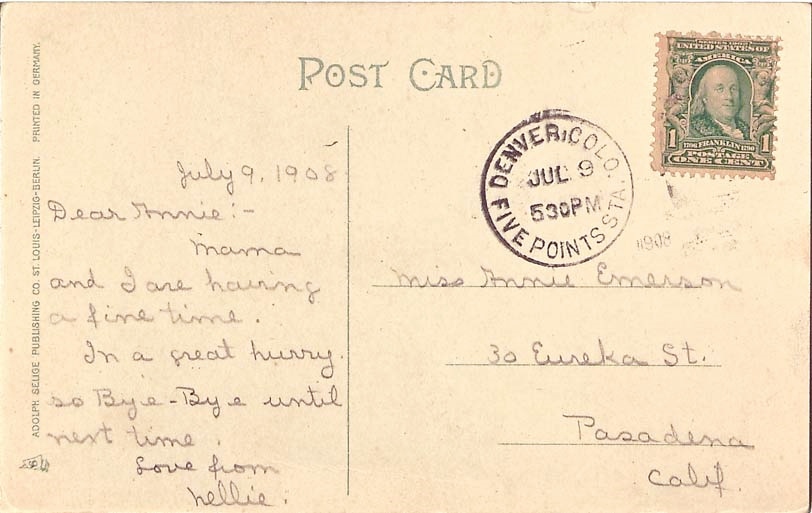 POST CARD
SERIES 1902
UNITED STATES OF
AMERICA
1 1
1706 FRANKLIN 1790
POSTAGE
ONE CENT
DENVER, COLO.
JUL 9
530PM
FIVE POINTS STA.
1908
July 9, 1908
Dear Annie:-
Mama
and I are having
a fine time.
In a great hurry.
so Bye-Bye until
next time.
Love from
Nellie.
Miss Annie Emerson
30 Eureka St.
Pasadena
Calif.
ADOLPH SELIGE PUBLISHING CO. ST. LOUIS-LEIPZIG-BERLIN. PRINTED IN GERMANY.